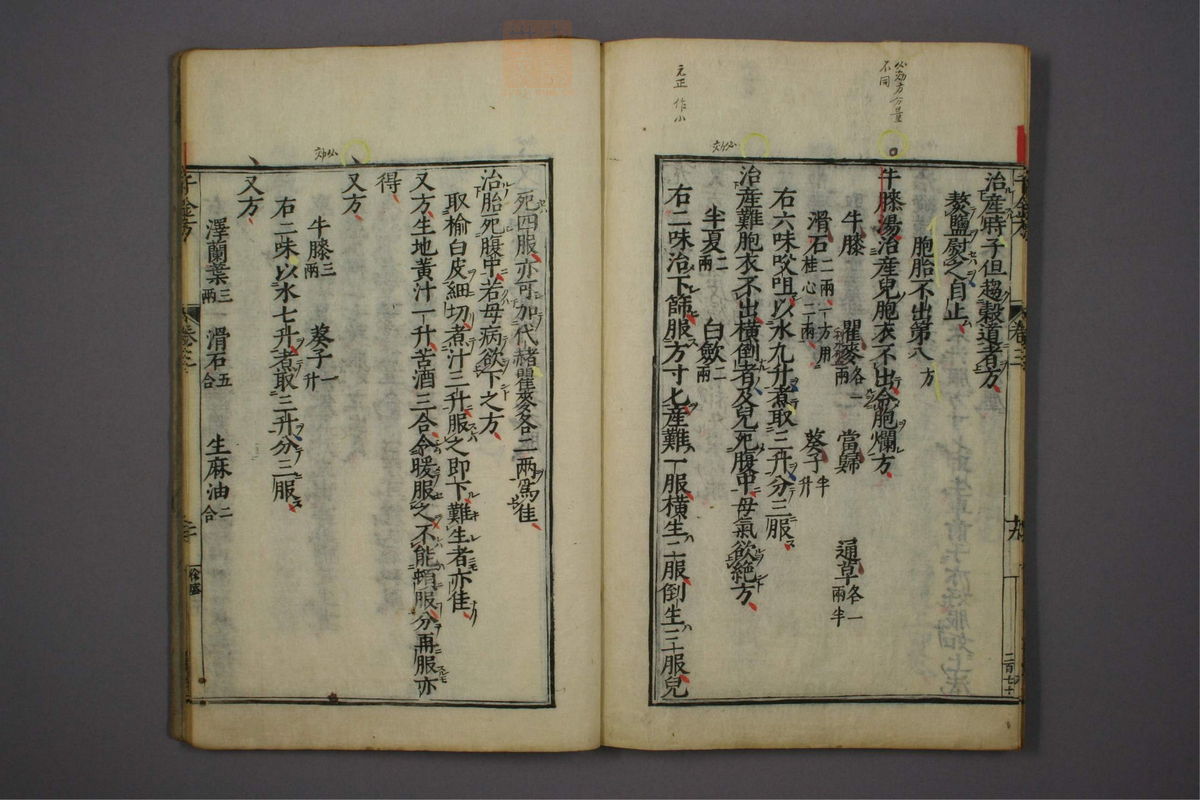 必効方分量
不同
元正作小
治産時子但趨穀道者方
熬鹽熨之自止
胞胎不出第八 方
牛膝湯治産兒胞衣不出令胞爛方
牛膝 瞿麥各一兩 當歸 通草各一兩半
滑石二兩一方用桂心二兩 葵子半升
右六味㕮咀以水九升煮取三升分三服
必効
治産難胞衣不出横倒者及兒死腹中母氣欲絶方
半夏二兩 白斂二兩
右二味治下篩服方寸匕産難一服横生二服倒生三服兒
死四服亦可加代赭瞿麥各二兩爲佳
治胎死腹中若母病欲下之方
取榆白皮細切煮汁三升服之即下難生者亦佳
又方生地黄汁一升苦酒三合令暖服之不能頓服分再服亦
得
必効
又方
牛膝三兩 葵子一升
右二味以水七升煮取三升分三服
又方
澤蘭葉三兩 滑石五合 生麻油二合
千金方 卷二